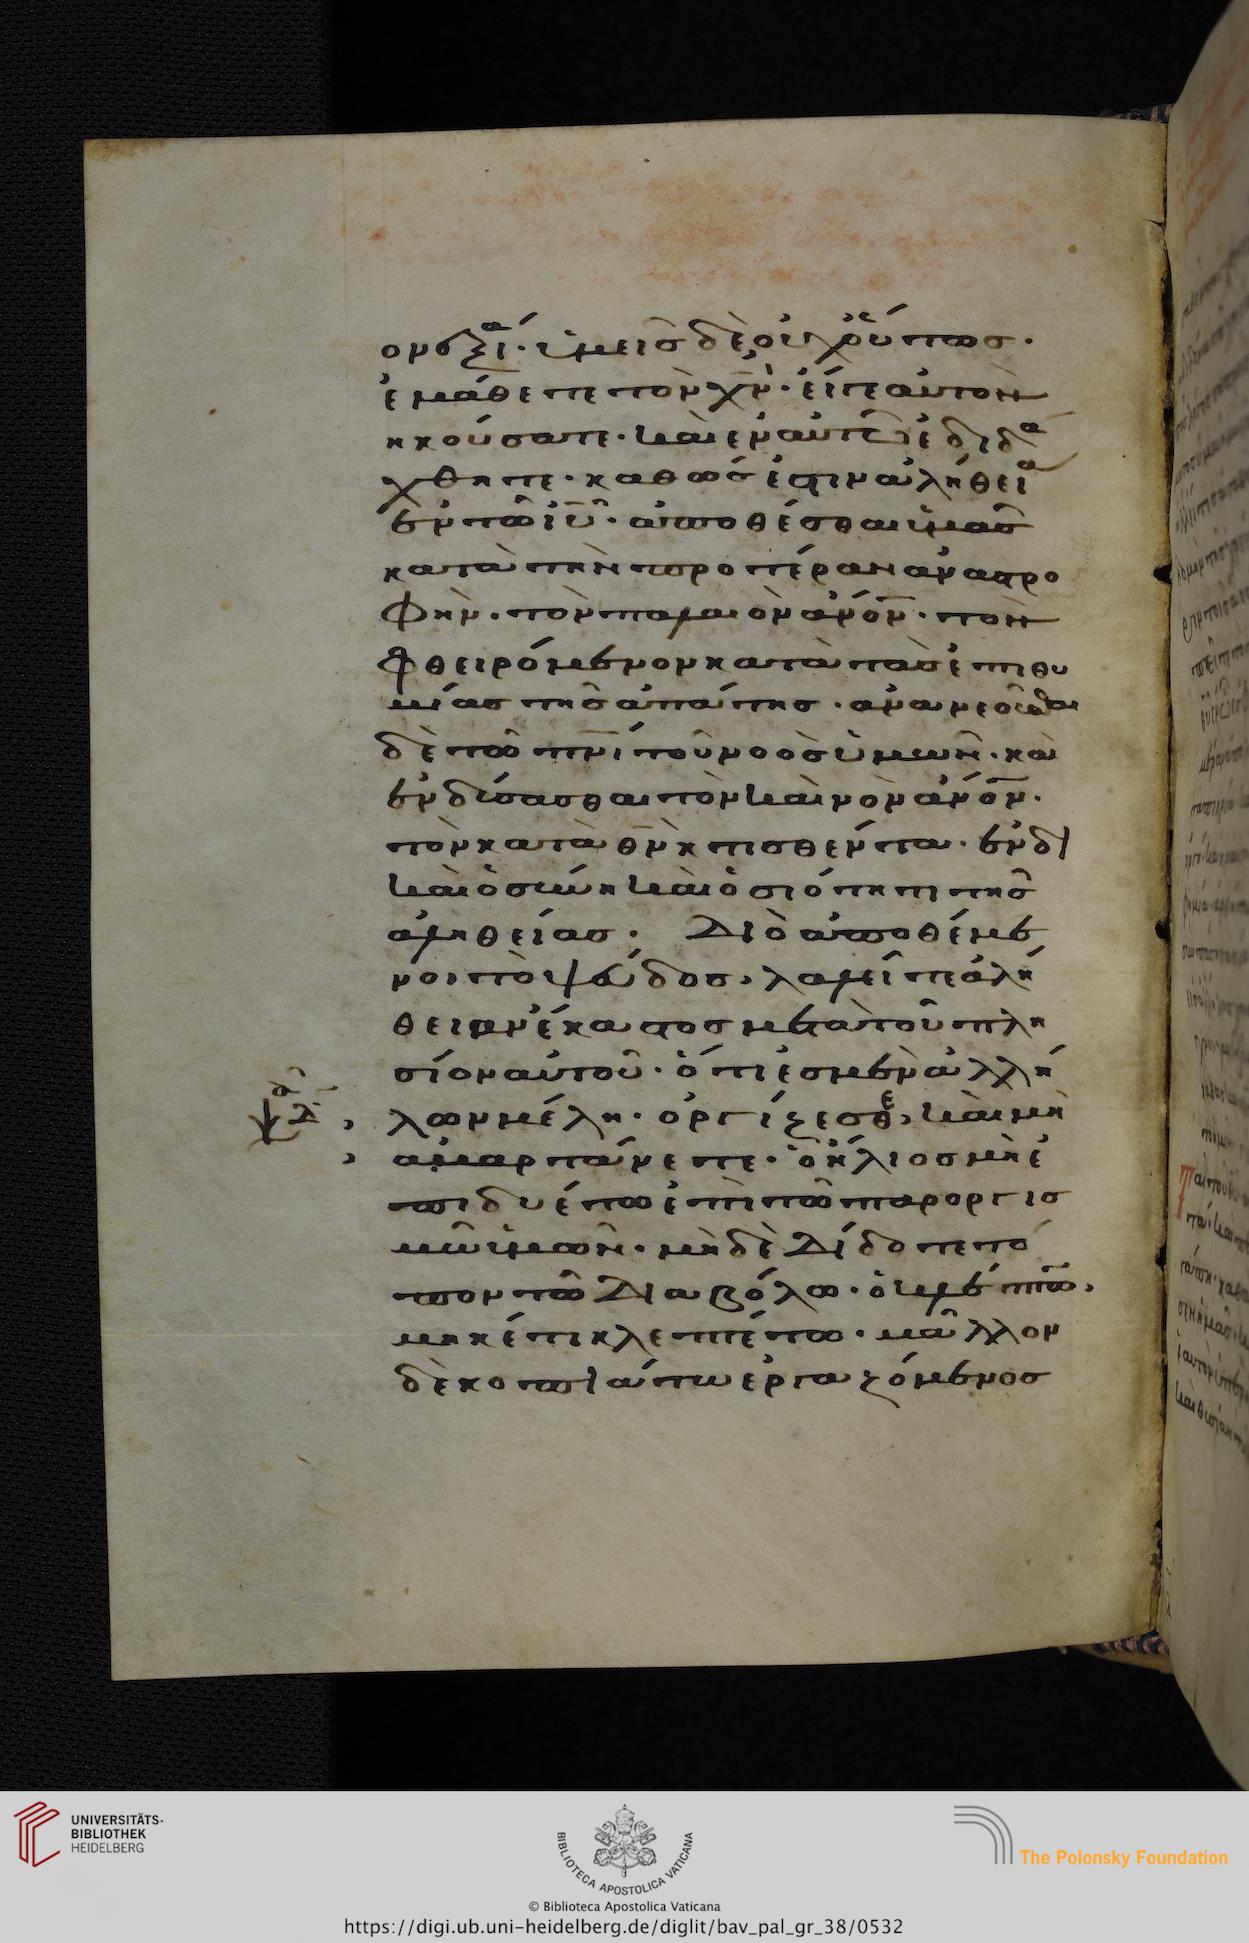 ονεξίᾳ· ὑμεῖς δὲ οὐχ οὕτως·
ἐμάθετε τὸν χν̅· εἴ γε αὐτὸν
ἠκούσατε· καὶ ἐν αὐτῶ ἐδιδά
χθητε· καθώς ἐστιν ἀλήθεια
ἐν τῶ ιυ̅· ἀποθέσθαι ὑμᾶς
κατὰ τὴν προτέραν ἀναστρο
φὴν· τὸν παλαιὸν ἄνον̅· τὸν
φθειρόμενον κατὰ τὰς ἐπιθυ
μίας τῆς ἀπάτης· ἀνανεοῦσθαι
δὲ τῶ πνι̅ τοῦ νοὸς ὑμῶν· καὶ
ἐνδύσασθαι τὸν καινὸν ἄνον̅·
τὸν κατὰ θν̅ κτισθέντα· ἐν δι
καιοσύνη καὶ ὁσιότητι τῆς
ἀληθείας· Διὸ ἀποθέμε
νοι τὸ ψεύδος, λαλεῖτε ἀλή
θειαν ἕκαστος μετὰ τοῦ πλη
σίον αὐτοῦ· ὅτι ἐσμὲν ἀλλή
ψα δ
λων μέλη· ὀργίζεσθε, καὶ μὴ
ἁμαρτάνετε· ὁ ἥλιος μὴ ἐ
πιδυέτω ἐπὶ τῶ παροργισ
μῶ ὑμῶν· μὴ δὲ δίδοτε τό
πον τῶ διαβόλω· ὁ κλέπτων,
μηκέτι κλεπτέτω· μᾶλλον
δὲ κοπιάτω ἐργαζόμενος
UNIVERSITÄTS-
BIBLIOTHEK
HEIDELBERG
BIBLIOTECA APOSTOLICA VATICANA
The Polonsky Foundation
© Biblioteca Apostolica Vaticana
https://digi.ub.uni-heidelberg.de/diglit/bav_pal_gr_38/0532